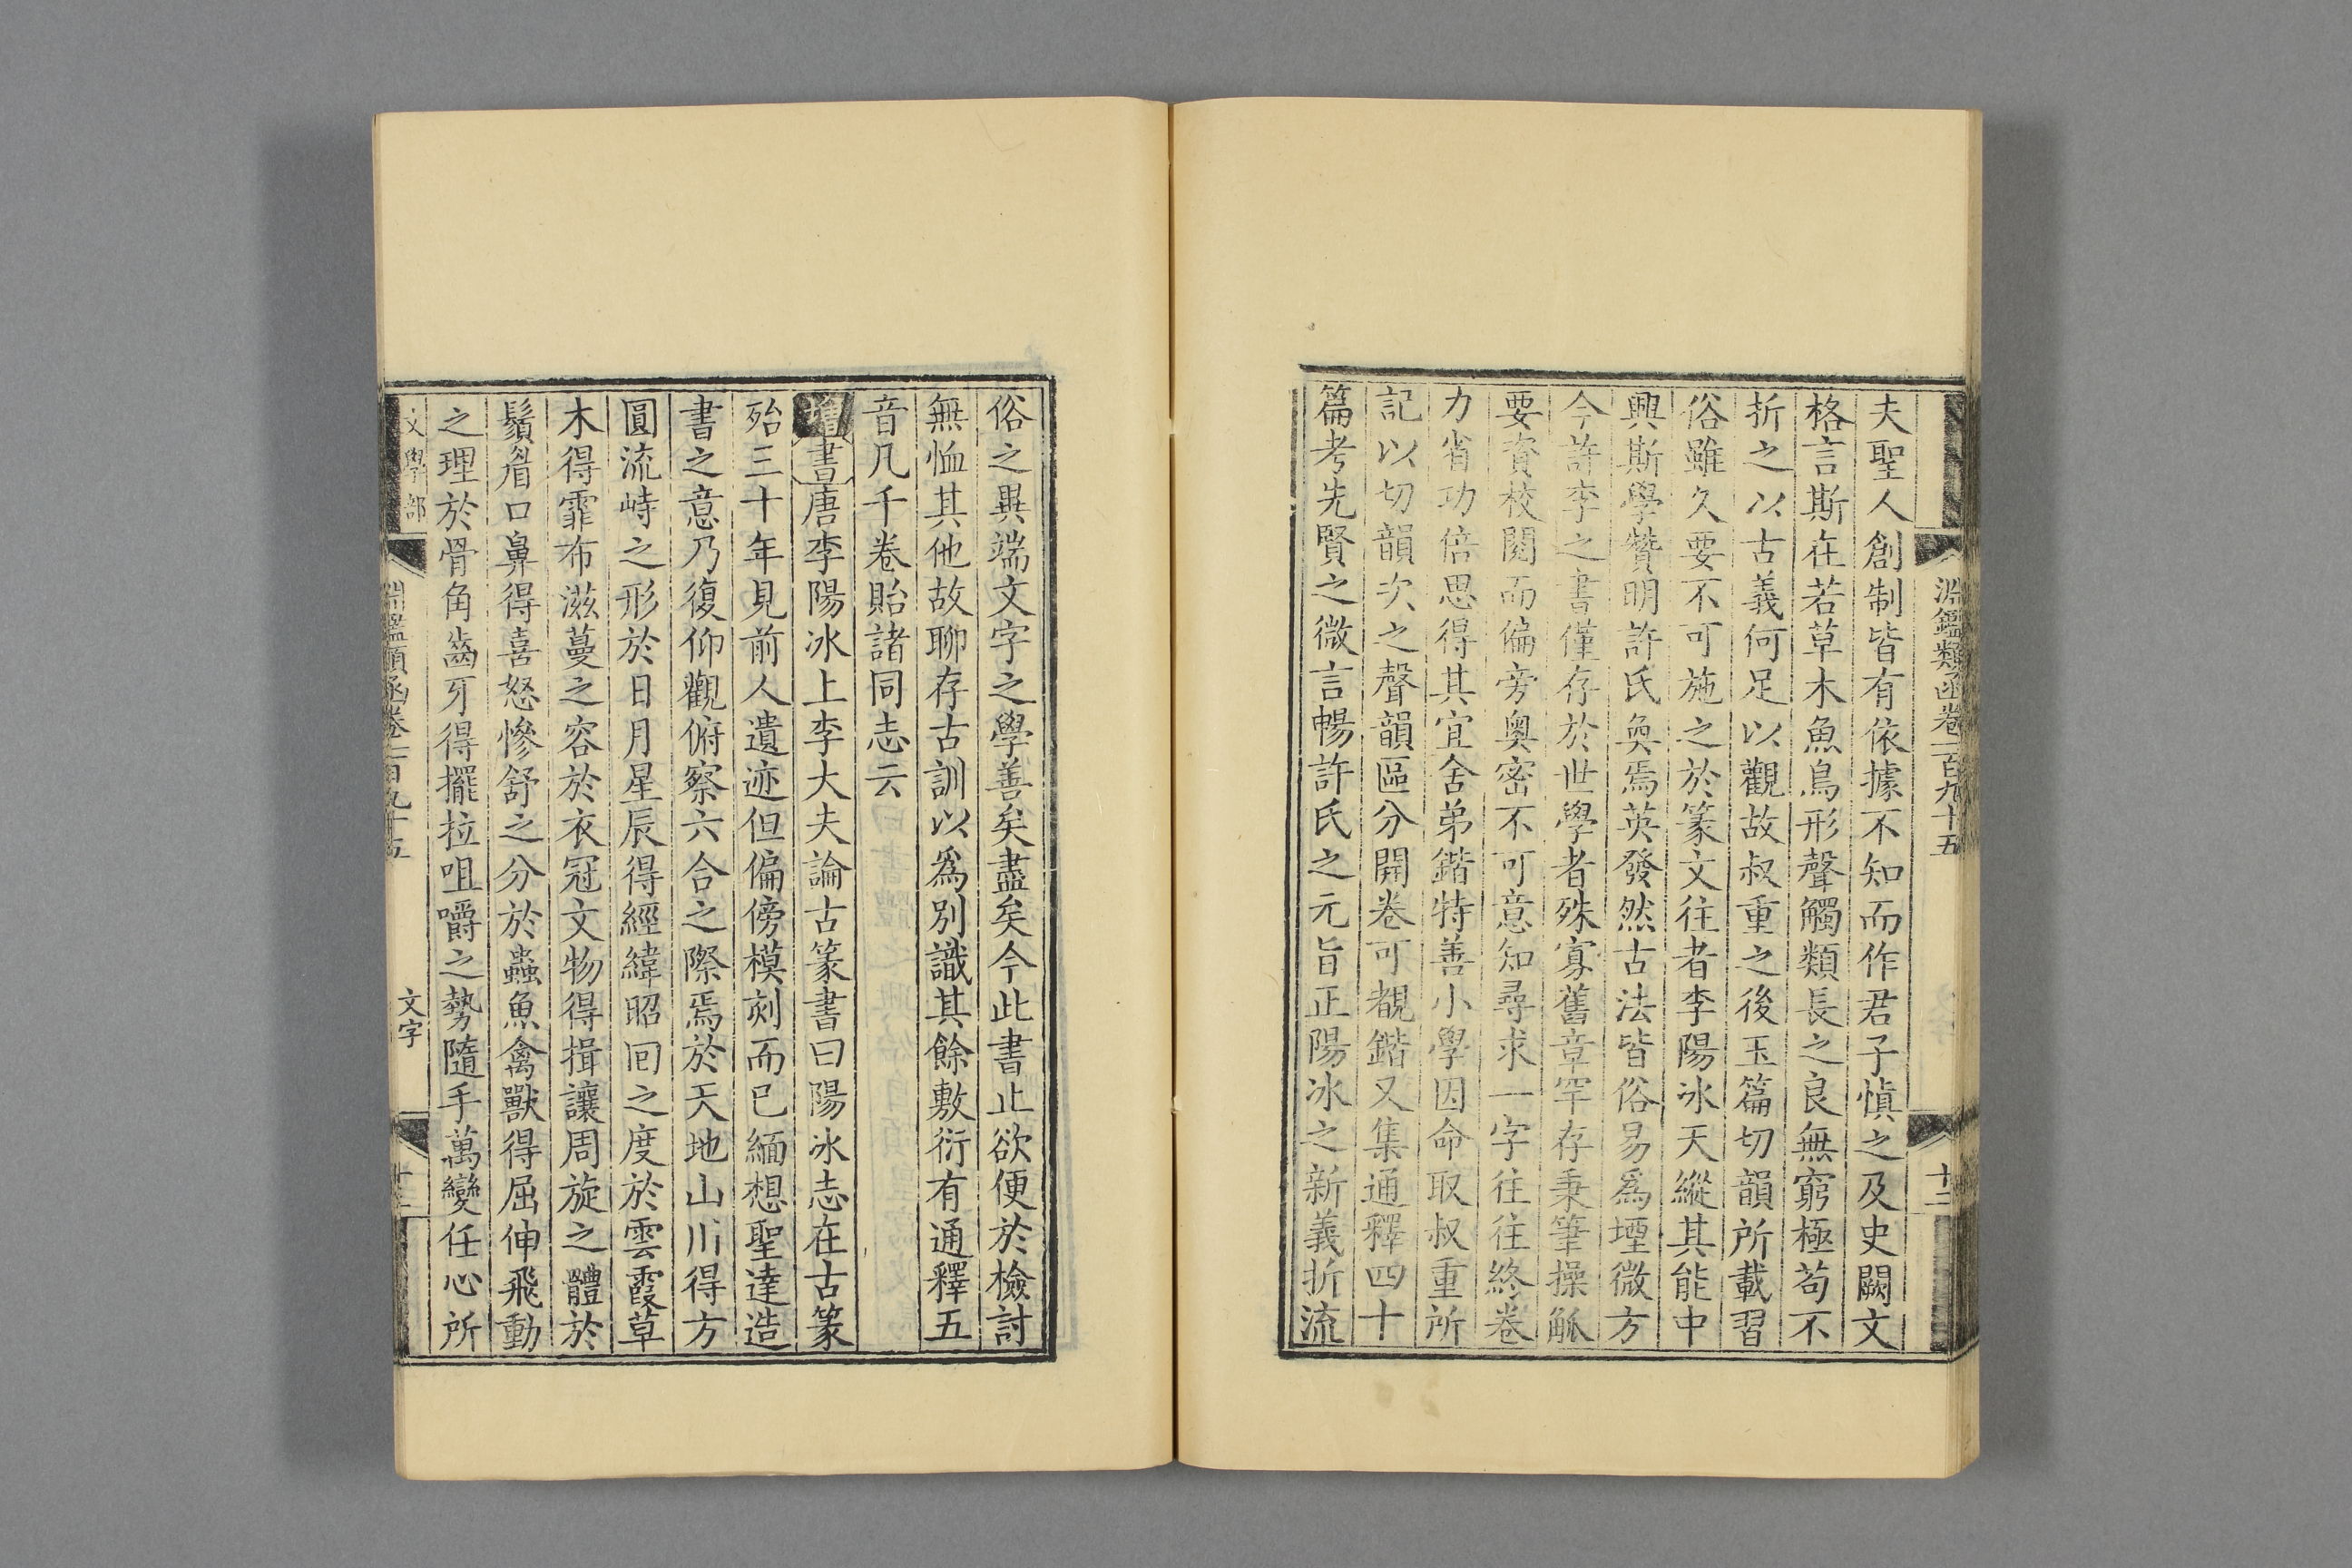 淵鑑類函卷一百九十五
十二
夫聖人創制皆有依據不知而作君子愼之及史闕文
格言斯在若草木魚鳥形聲觸類長之良無窮極苟不
折之以古義何足以觀故叔重之後玉篇切韻所載習
俗雖久要不可施之於篆文往者李陽冰天縱其能中
興斯學贊明許氏奐焉英發然古法皆俗易爲堙微方
今許李之書僅存於世學者殊寡舊章罕存秉筆操觚
要資校閱而偏旁奧密不可意知尋求一字往往終卷
力省功倍思得其宜舍弟鍇特善小學因命取叔重所
記以切韻次之聲韻區分開卷可覩鍇又集通釋四十
篇考先賢之微言暢許氏之元旨正陽冰之新義折流
俗之異端文字之學善矣盡矣今此書止欲便於檢討
無恤其他故聊存古訓以爲別識其餘敷衍有通釋五
音凡千卷貽諸同志云
增書唐李陽冰上李大夫論古篆書曰陽冰志在古篆
殆三十年見前人遺迹但偏傍模刻而已緬想聖達造
書之意乃復仰觀俯察六合之際焉於天地山川得方
圓流峙之形於日月星辰得經緯昭回之度於雲霞草
木得霏布滋蔓之容於衣冠文物得揖讓周旋之體於
鬚眉口鼻得喜怒慘舒之分於蟲魚禽獸得屈伸飛動
之理於骨角齒牙得擺拉咀嚼之勢隨手萬變任心所
文學部
淵鑑類函卷一百九十五
文字
十三